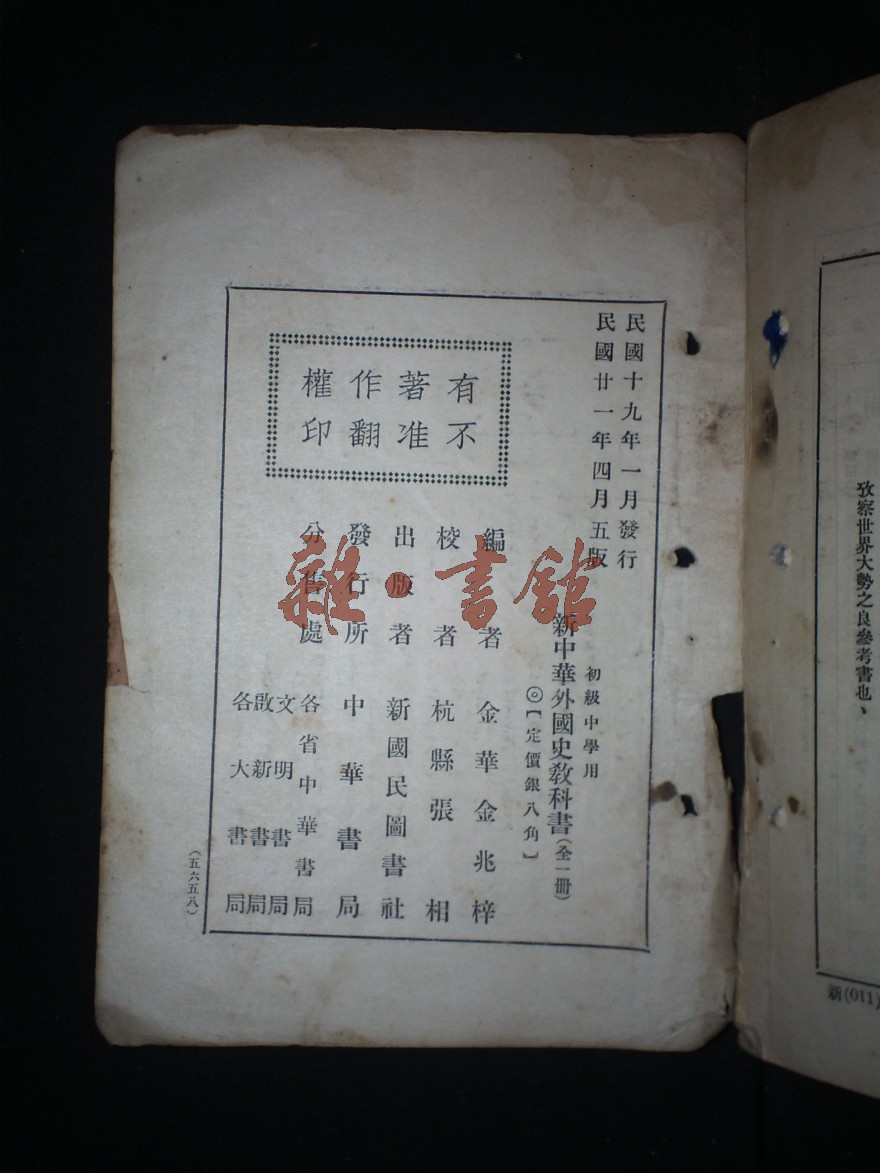 民國十九年一月發行
民國廿一年四月五版
初級中學用
新中華外國史教科書(全一冊)
◎【定價銀八角】
編者 金華金兆梓
校者 杭縣張相
出版者 新國民圖書社
發行所 中華書局
分售處 各省中華書局
文明書局
啟新書局
各大書局
有著作權
不准翻印
(五六五八)
雜·書館
攷察世界大勢之良參考書也、
新(011)